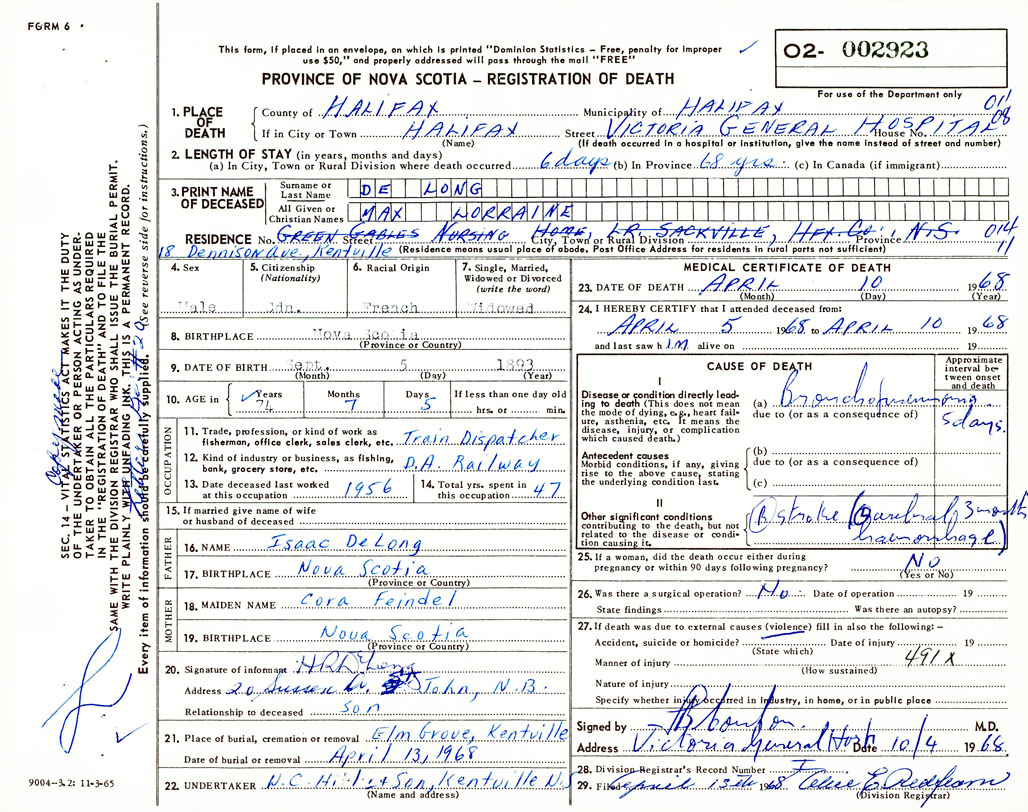 FORM 6
This form, if placed in an envelope, on which is printed "Dominion Statistics – Free, penalty for improper
use $50," and properly addressed will pass through the mail "FREE"
O2- 002923
For use of the Department only
PROVINCE OF NOVA SCOTIA – REGISTRATION OF DEATH
1. PLACE OF DEATH
County of HALIFAX Municipality of HALIFAX 011
If in City or Town HALIFAX Street VICTORIA GENERAL HOSPITAL House No. 08
(Name) (If death occurred in a hospital or institution, give the name instead of street and number)
2. LENGTH OF STAY (in years, months and days)
(a) In City, Town or Rural Division where death occurred 6 days (b) In Province 68 yrs. (c) In Canada (if immigrant)
3. PRINT NAME OF DECEASED
Surname or Last Name DE LONG
All Given or Christian Names MAX LORRAINE
RESIDENCE No. GREEN GABLES Street NURSING HOME, City, Town or Rural Division LR. SACKVILLE, HFX CO., Province N.S. 014
18 Dennison Ave., Kentville (Residence means usual place of abode. Post Office Address for residents in rural parts not sufficient) 11
4. Sex
Male
5. Citizenship (Nationality)
Cdn.
6. Racial Origin
French
7. Single, Married, Widowed or Divorced (write the word)
Widowed
8. BIRTHPLACE Nova Scotia
(Province or Country)
9. DATE OF BIRTH Sept. 5 1893
(Month) (Day) (Year)
10. AGE in Years 74 Months 7 Days 5 If less than one day old hrs. or min.
OCCUPATION
11. Trade, profession, or kind of work as fisherman, office clerk, sales clerk, etc. Train Dispatcher
12. Kind of industry or business, as fishing, bank, grocery store, etc. D.A. Railway
13. Date deceased last worked at this occupation 1956
14. Total yrs. spent in this occupation 47
15. If married give name of wife or husband of deceased
FATHER
16. NAME Isaac DeLong
17. BIRTHPLACE Nova Scotia
(Province or Country)
MOTHER
18. MAIDEN NAME Cora Feindel
19. BIRTHPLACE Nova Scotia
(Province or Country)
20. Signature of informant
Address 20 Sussex John, N.B.
Relationship to deceased Son
21. Place of burial, cremation or removal Elm Grove, Kentville
Date of burial or removal April 13, 1968
22. UNDERTAKER N.C. & Son, Kentville N.S.
(Name and address)
MEDICAL CERTIFICATE OF DEATH
23. DATE OF DEATH APRIL 10 1968
(Month) (Day) (Year)
24. I HEREBY CERTIFY that I attended deceased from:
APRIL 5 1968 to APRIL 10 1968
and last saw him alive on 19
CAUSE OF DEATH
Approximate interval between onset and death
I
Disease or condition directly leading to death (This does not mean the mode of dying, e.g., heart failure, asthenia, etc. It means the disease, injury, or complication which caused death.)
(a) Bronchopneumonia
due to (or as a consequence of)
5 days.
Antecedent causes
Morbid conditions, if any, giving rise to the above cause, stating the underlying condition last.
(b)
due to (or as a consequence of)
(c)
II
Other significant conditions contributing to the death, but not related to the disease or condition causing it.
(R) stroke (cerebral haemorrhage) 3 months
25. If a woman, did the death occur either during pregnancy or within 90 days following pregnancy? NO
(Yes or No)
26. Was there a surgical operation? No Date of operation 19
State findings Was there an autopsy?
27. If death was due to external causes (violence) fill in also the following:–
Accident, suicide or homicide? Date of injury 19
(State which)
Manner of injury 491 X
(How sustained)
Nature of injury
Specify whether injury occurred in Industry, in home, or in public place
Signed by M.D.
Address Victoria General Hosp Date 10/4 1968.
28. Division Registrar's Record Number
29. Filed April 13th 1968
(Division Registrar)
SEC. 14 – VITAL STATISTICS ACT MAKES IT THE DUTY
OF THE UNDERTAKER OR PERSON ACTING AS UNDERTAKER TO OBTAIN ALL THE PARTICULARS REQUIRED
IN THE "REGISTRATION OF DEATH" AND TO FILE THE
SAME WITH THE DIVISION REGISTRAR WHO SHALL ISSUE THE BURIAL PERMIT.
WRITE PLAINLY WITH UNFADING INK. THIS IS A PERMANENT RECORD.
Every item of information should be carefully supplied. (See reverse side for instructions.)
9004-3.2: 11-3-65